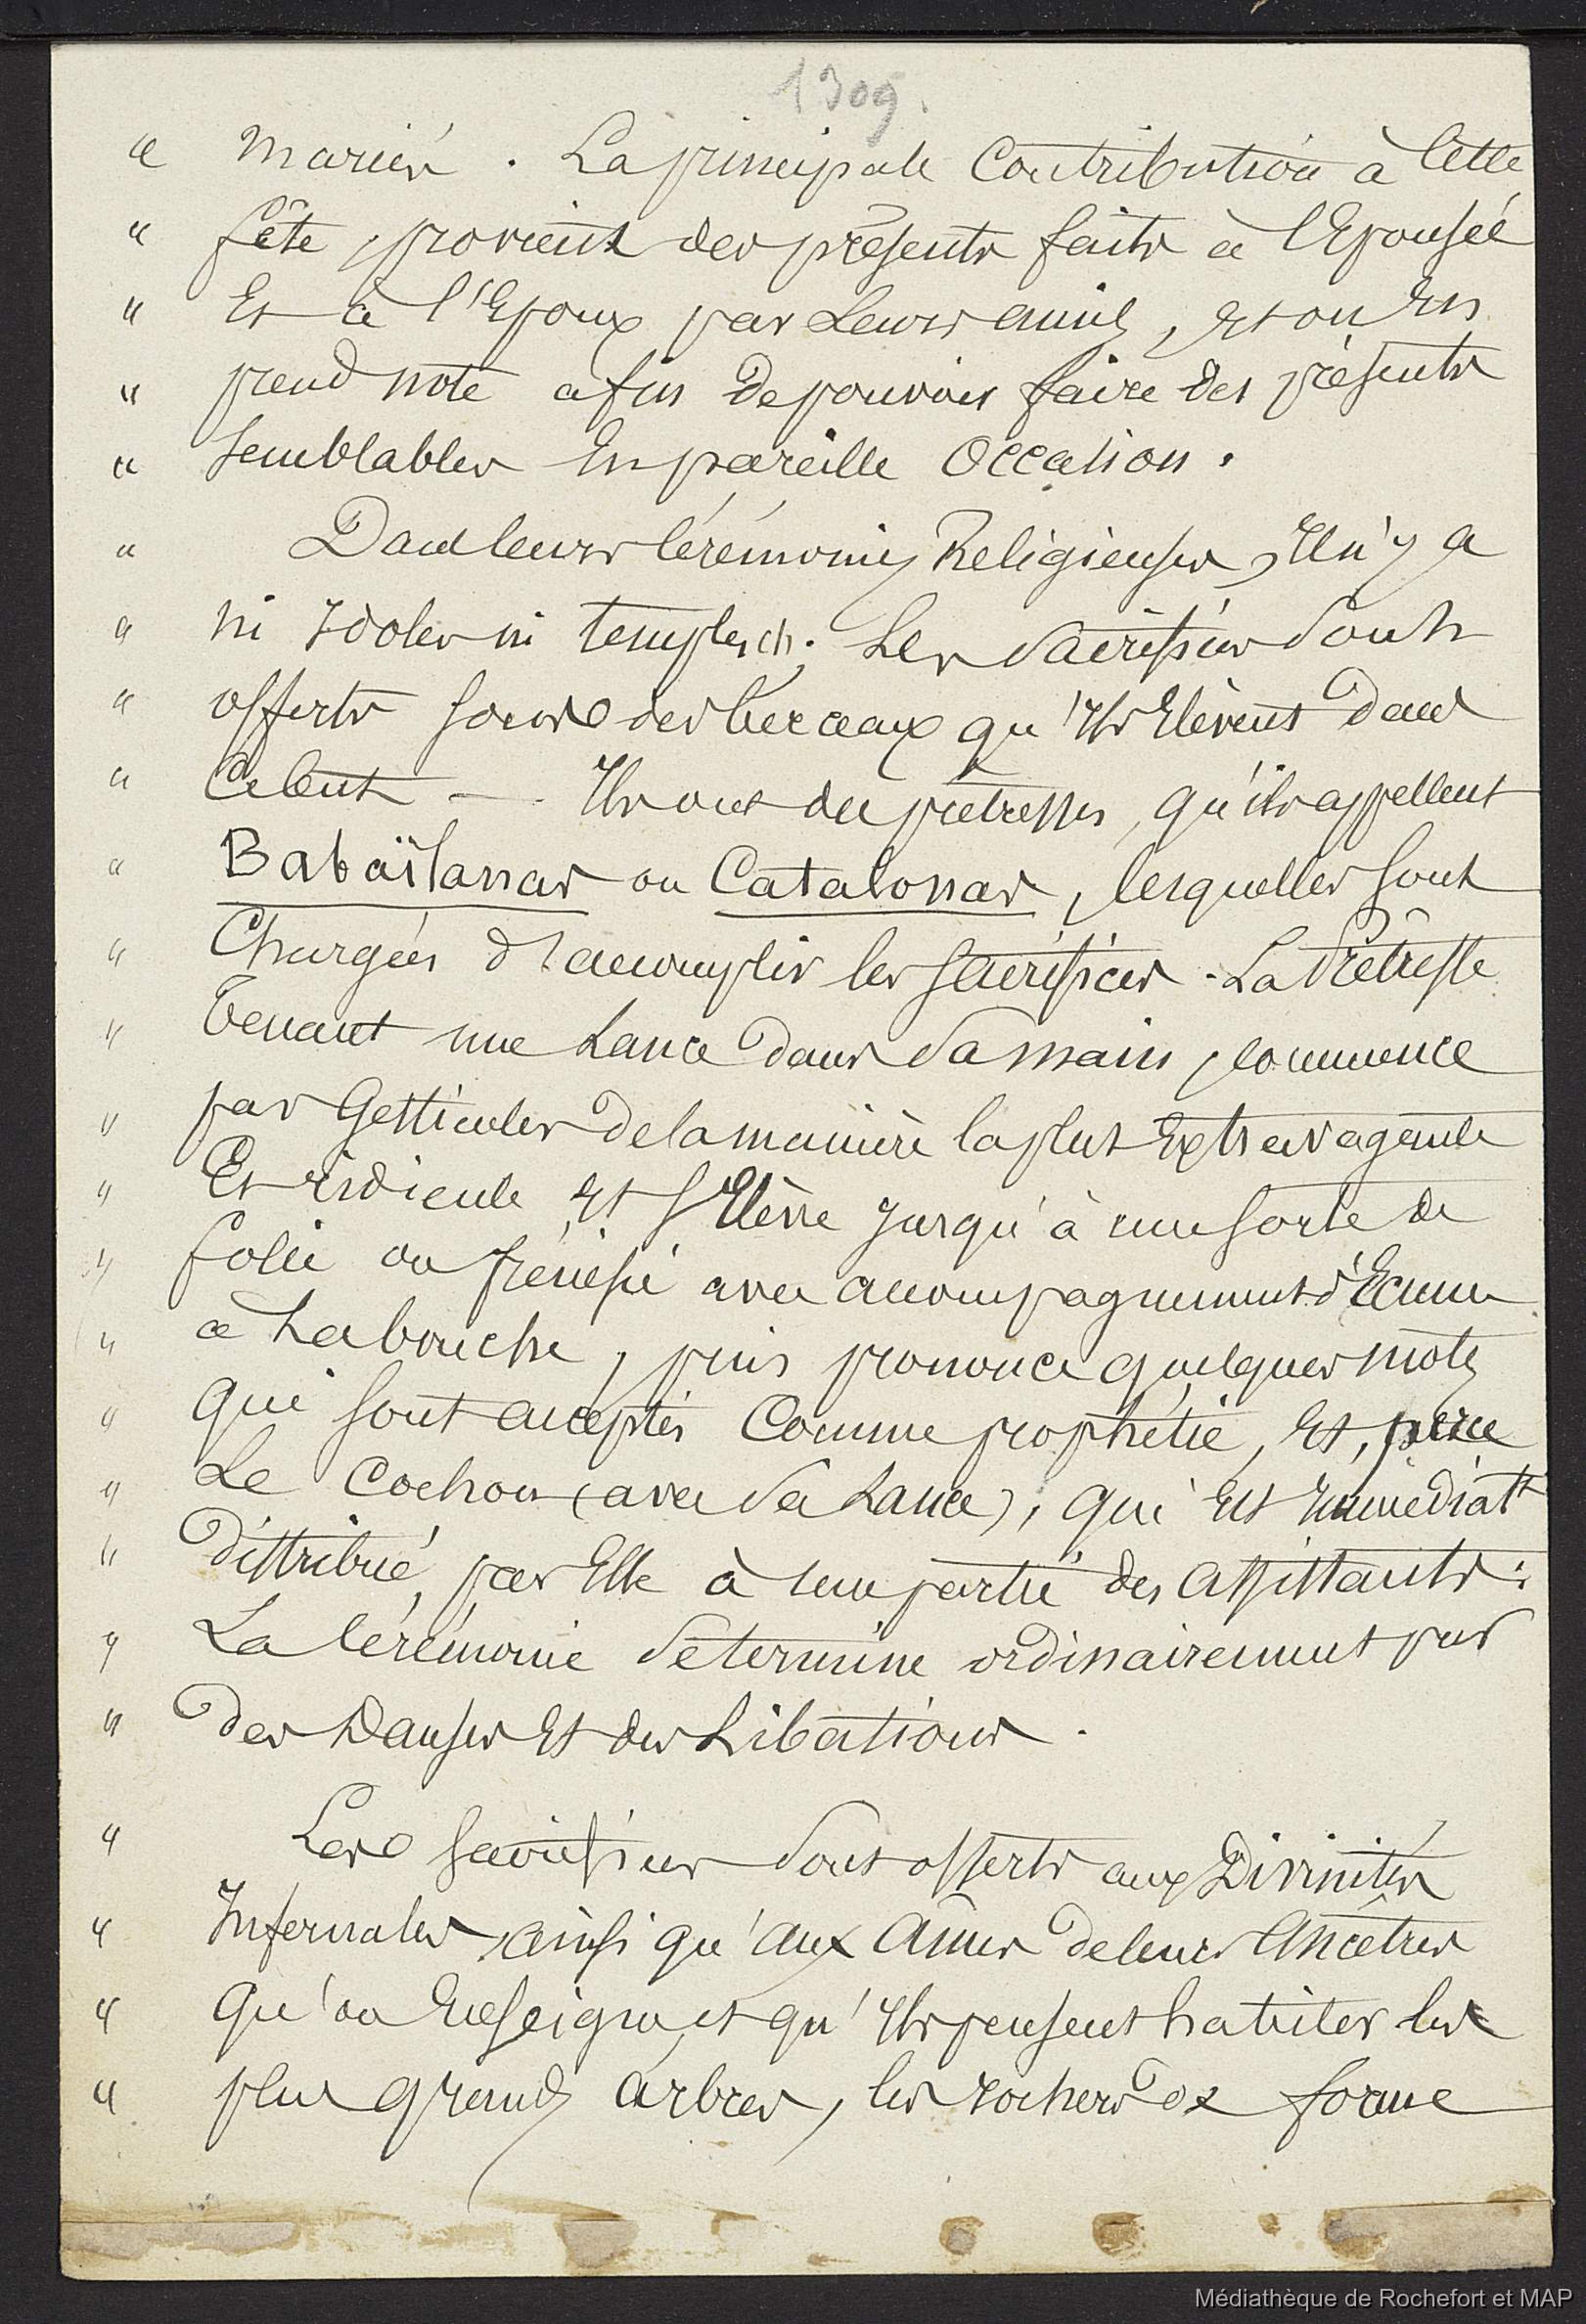 1309.
" mariés. La principale Contribution à Cette
" fête, provient des présents faits à l'Epousée
" Et à l'Epoux par Leurs amis, Et on En
" prend note afin de pouvoir faire des présents
" semblables En pareille Occasion.
" Dans leurs Cérémonies Religieuses, Il n'y a
" ni Idoles ni temples (1). Les Sacrifices Sont
" offerts sous des berceaux qu'Ils Elèvent dans
" Ce but — Ils ont des prêtresses, qu'ils appellent
" Babaïlanas ou Catalonas, lesquelles sont
" Chargées d'accomplir les Sacrifices. La Prêtresse
" tenant une Lance dans Sa main, commence
" par Gesticuler de la manière la plus Extravagante
" Et ridicule Et s'Elève jusqu'à une sorte de
" folie ou frénésie avec accompagnement d'Ecume
" à La bouche, puis prononce quelques mots
" qui sont acceptés Comme prophétie, Et, perce
" Le Cochon (avec Sa Lance), qui Est Immédiatt
" distribué par Elle à une partie des assistants:
" La Cérémonie Se termine ordinairement par
" des Danses Et des Libations.
" Les Sacrifices Sont offerts aux Divinités
" Infernales, ainsi qu'aux Âmes de leurs Ancêtres
" Qu'on Enseigne, et qu'Ils pensent habiter les
" plus grands Arbres, les rochers de forme
Médiathèque de Rochefort et MAP